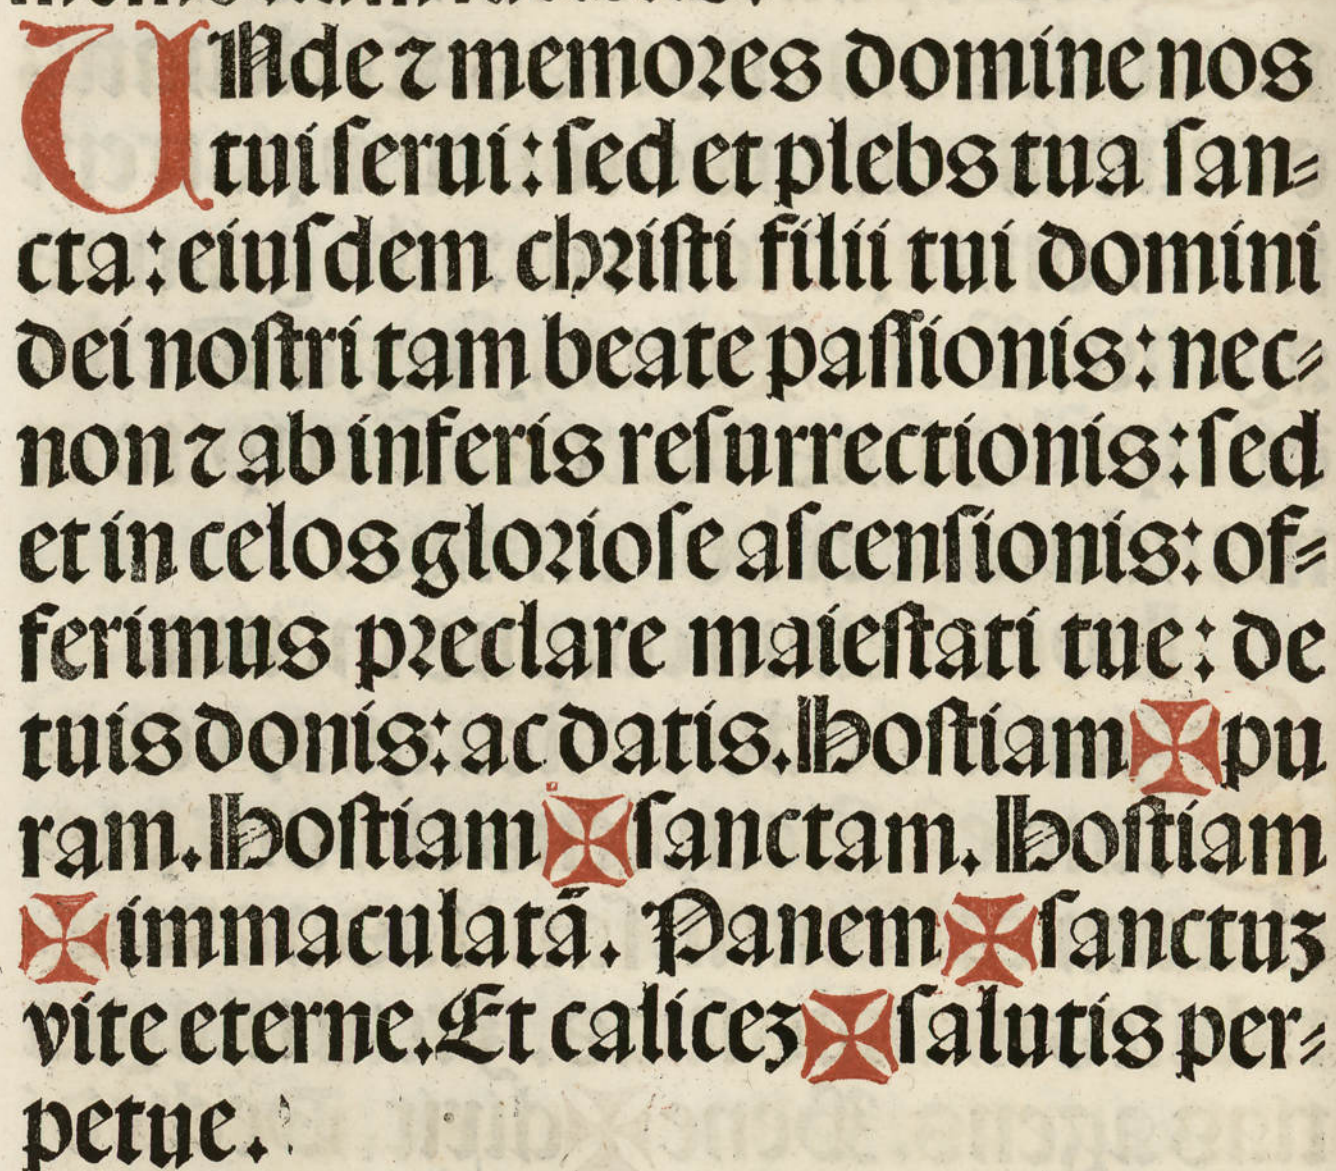 UNde ⁊ memoꝛes domine nos
tui ſerui: ſed et plebs tua ſan⸗
cta: eiuſdem chꝛiſti filii tui domini
dei noſtri tam beate paſſionis: nec⸗
non ⁊ ab inferis reſurrectionis: ſed
et in celos gloꝛioſe aſcenſionis: of⸗
ferimus pꝛeclare maieſtati tue: de
tuis donis: ac datis. Hoſtiam ✠ pu
ram. Hoſtiam ✠ ſanctam. Hoſtiam
✠ immaculatā. Panem ✠ ſanctuꝫ
vite eterne. Et caliceꝫ ✠ ſalutis per⸗
petue.